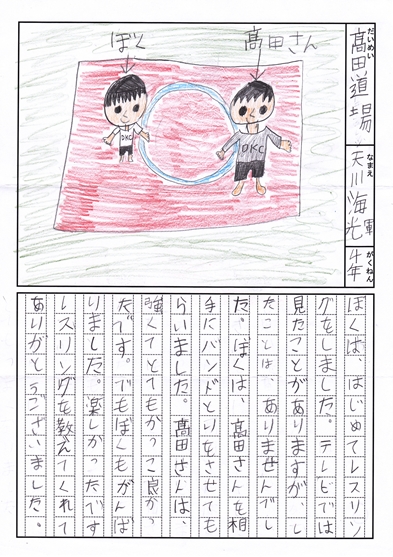 だいめい
髙田道場
なまえ
天川海輝
がくねん
4年
髙田さん
ぼく
DKC
DKC
ぼくは、はじめてレスリン
グをしました。テレビでは
見たことがありますが、し
たことは、ありませんでし
た。ぼくは、髙田さんを相
手にバンドとりをさせても
らいました。髙田さんは、
強くてとてもかっこ良かっ
たです。でもぼくもがんば
りました。楽しかったです
レスリングを教えてくれて
ありがとうございました。